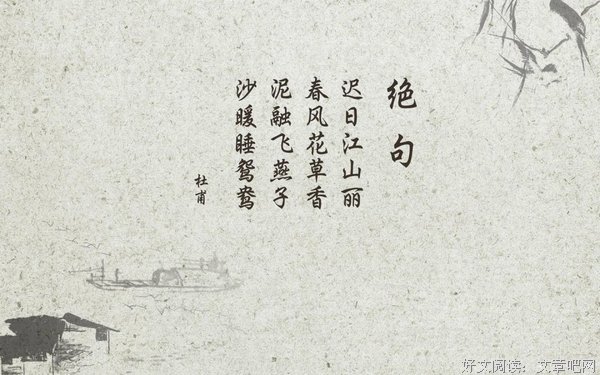 绝句
迟日江山丽
春风花草香
泥融飞燕子
沙暖睡鸳鸯
杜甫
好文阅读：文章吧网